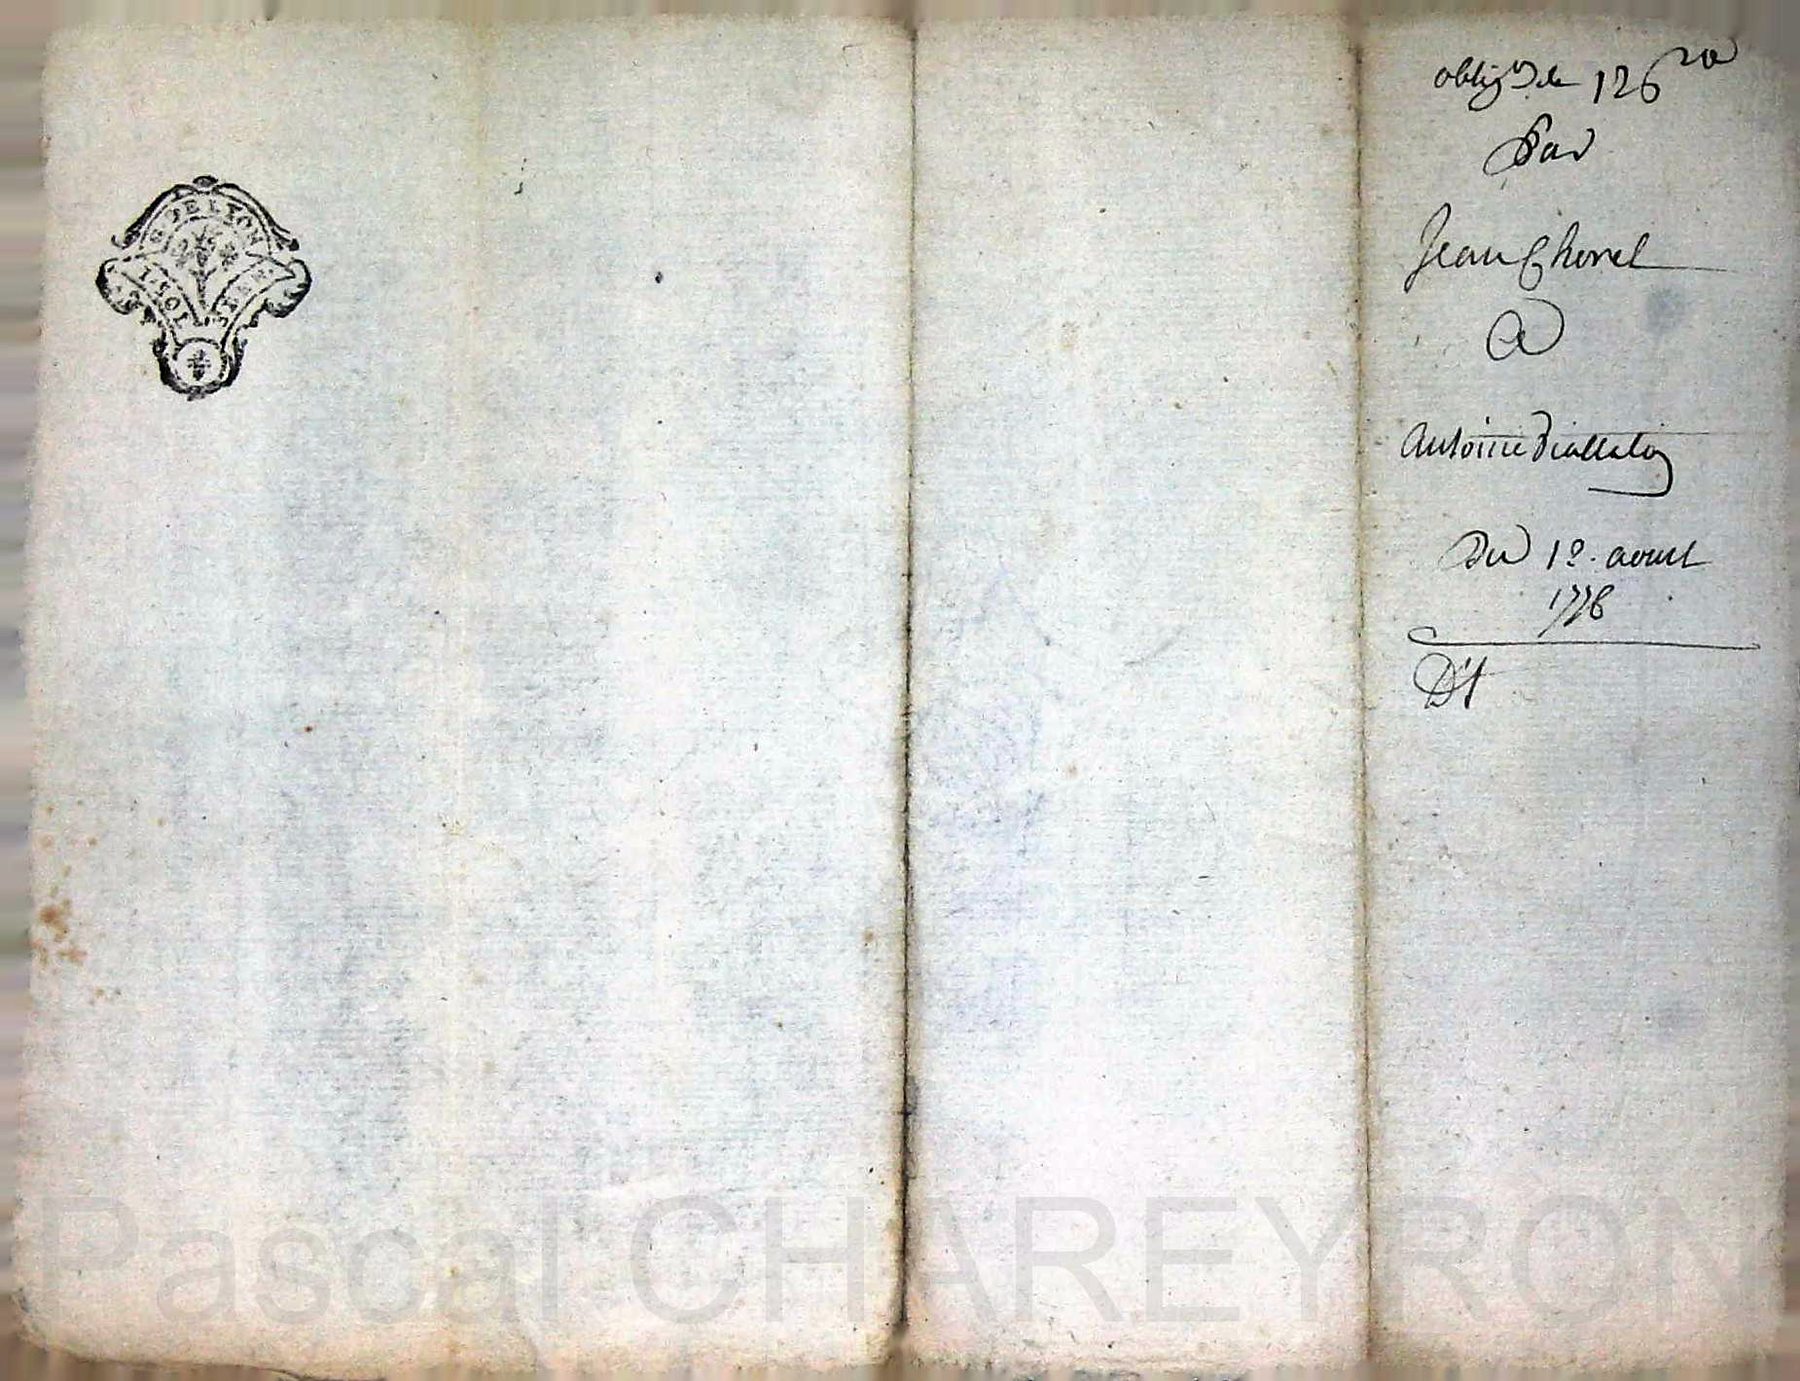 G. DE LYON
DEUX SOLS
oblig.on de 126 ₶
Par
Jean Chorel
a
Antoine Viallaton
Du 1er. aoust
1778
Dt
Pascal CHAREYRON